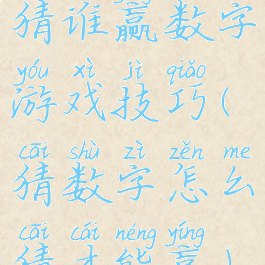 猜谁赢数字
yóu xì jì qiǎo
游戏技巧(
cāi shù zì zěn me
猜数字怎么
cāi cái néng yíng
猜才能赢)